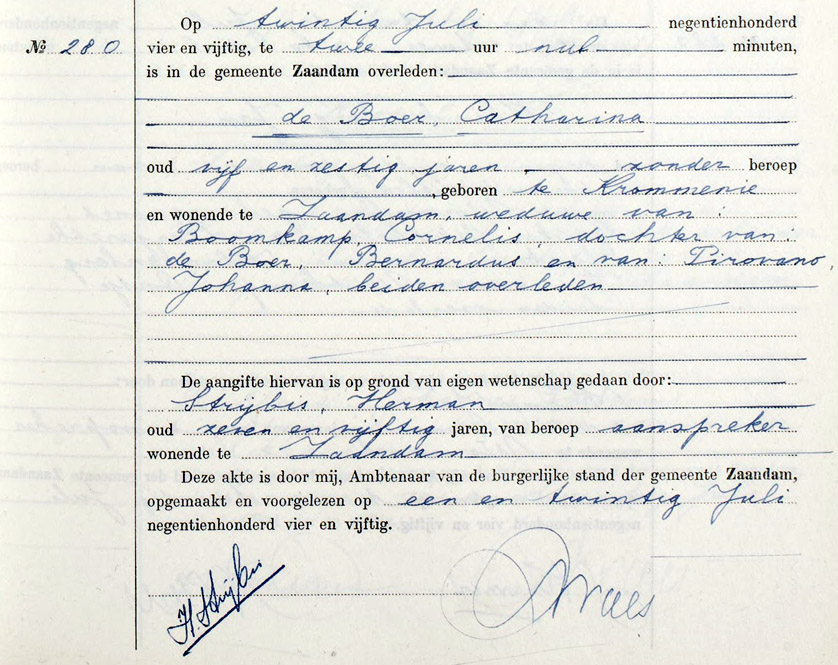 Op twintig Juli negentienhonderd
№ 280
vier en vijftig, te twee uur nul minuten,
is in de gemeente Zaandam overleden:
de Boer Catharina
oud vijf en zestig jaren zonder beroep
, geboren te Krommenie
en wonende te Zaandam, weduwe van:
Boomkamp, Cornelis, dochter van:
de Boer, Bernardus en van: Pirovano,
Johanna, beiden overleden
De aangifte hiervan is op grond van eigen wetenschap gedaan door:
Strijbis, Herman
oud zeven en vijftig jaren, van beroep aanspreker
wonende te Zaandam
Deze akte is door mij, Ambtenaar van de burgerlijke stand der gemeente Zaandam,
opgemaakt en voorgelezen op een en twintig Juli
negentienhonderd vier en vijftig.
H. Strijbis